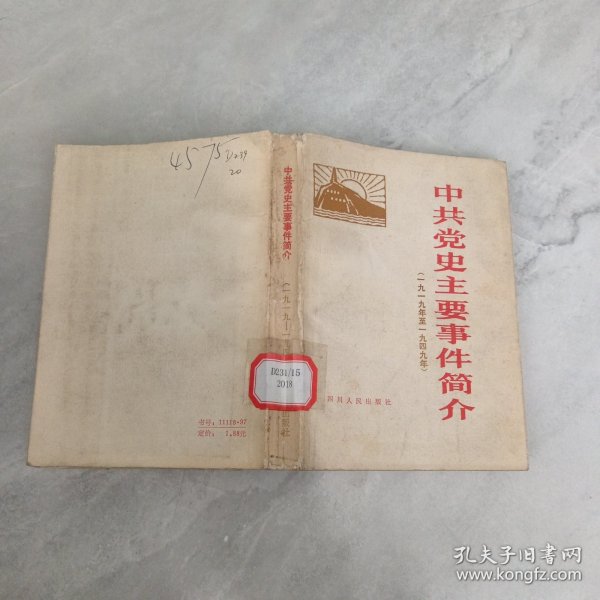 中共党史主要事件简介
(一九一九年至一九四九年)
四川人民出版社
中共党史主要事件简介
(一九一九—一
D231/15
2018
版社
4575
D239
20
书号：11118·97
定价：1.88元
孔夫子旧书网
www.kongfz.com